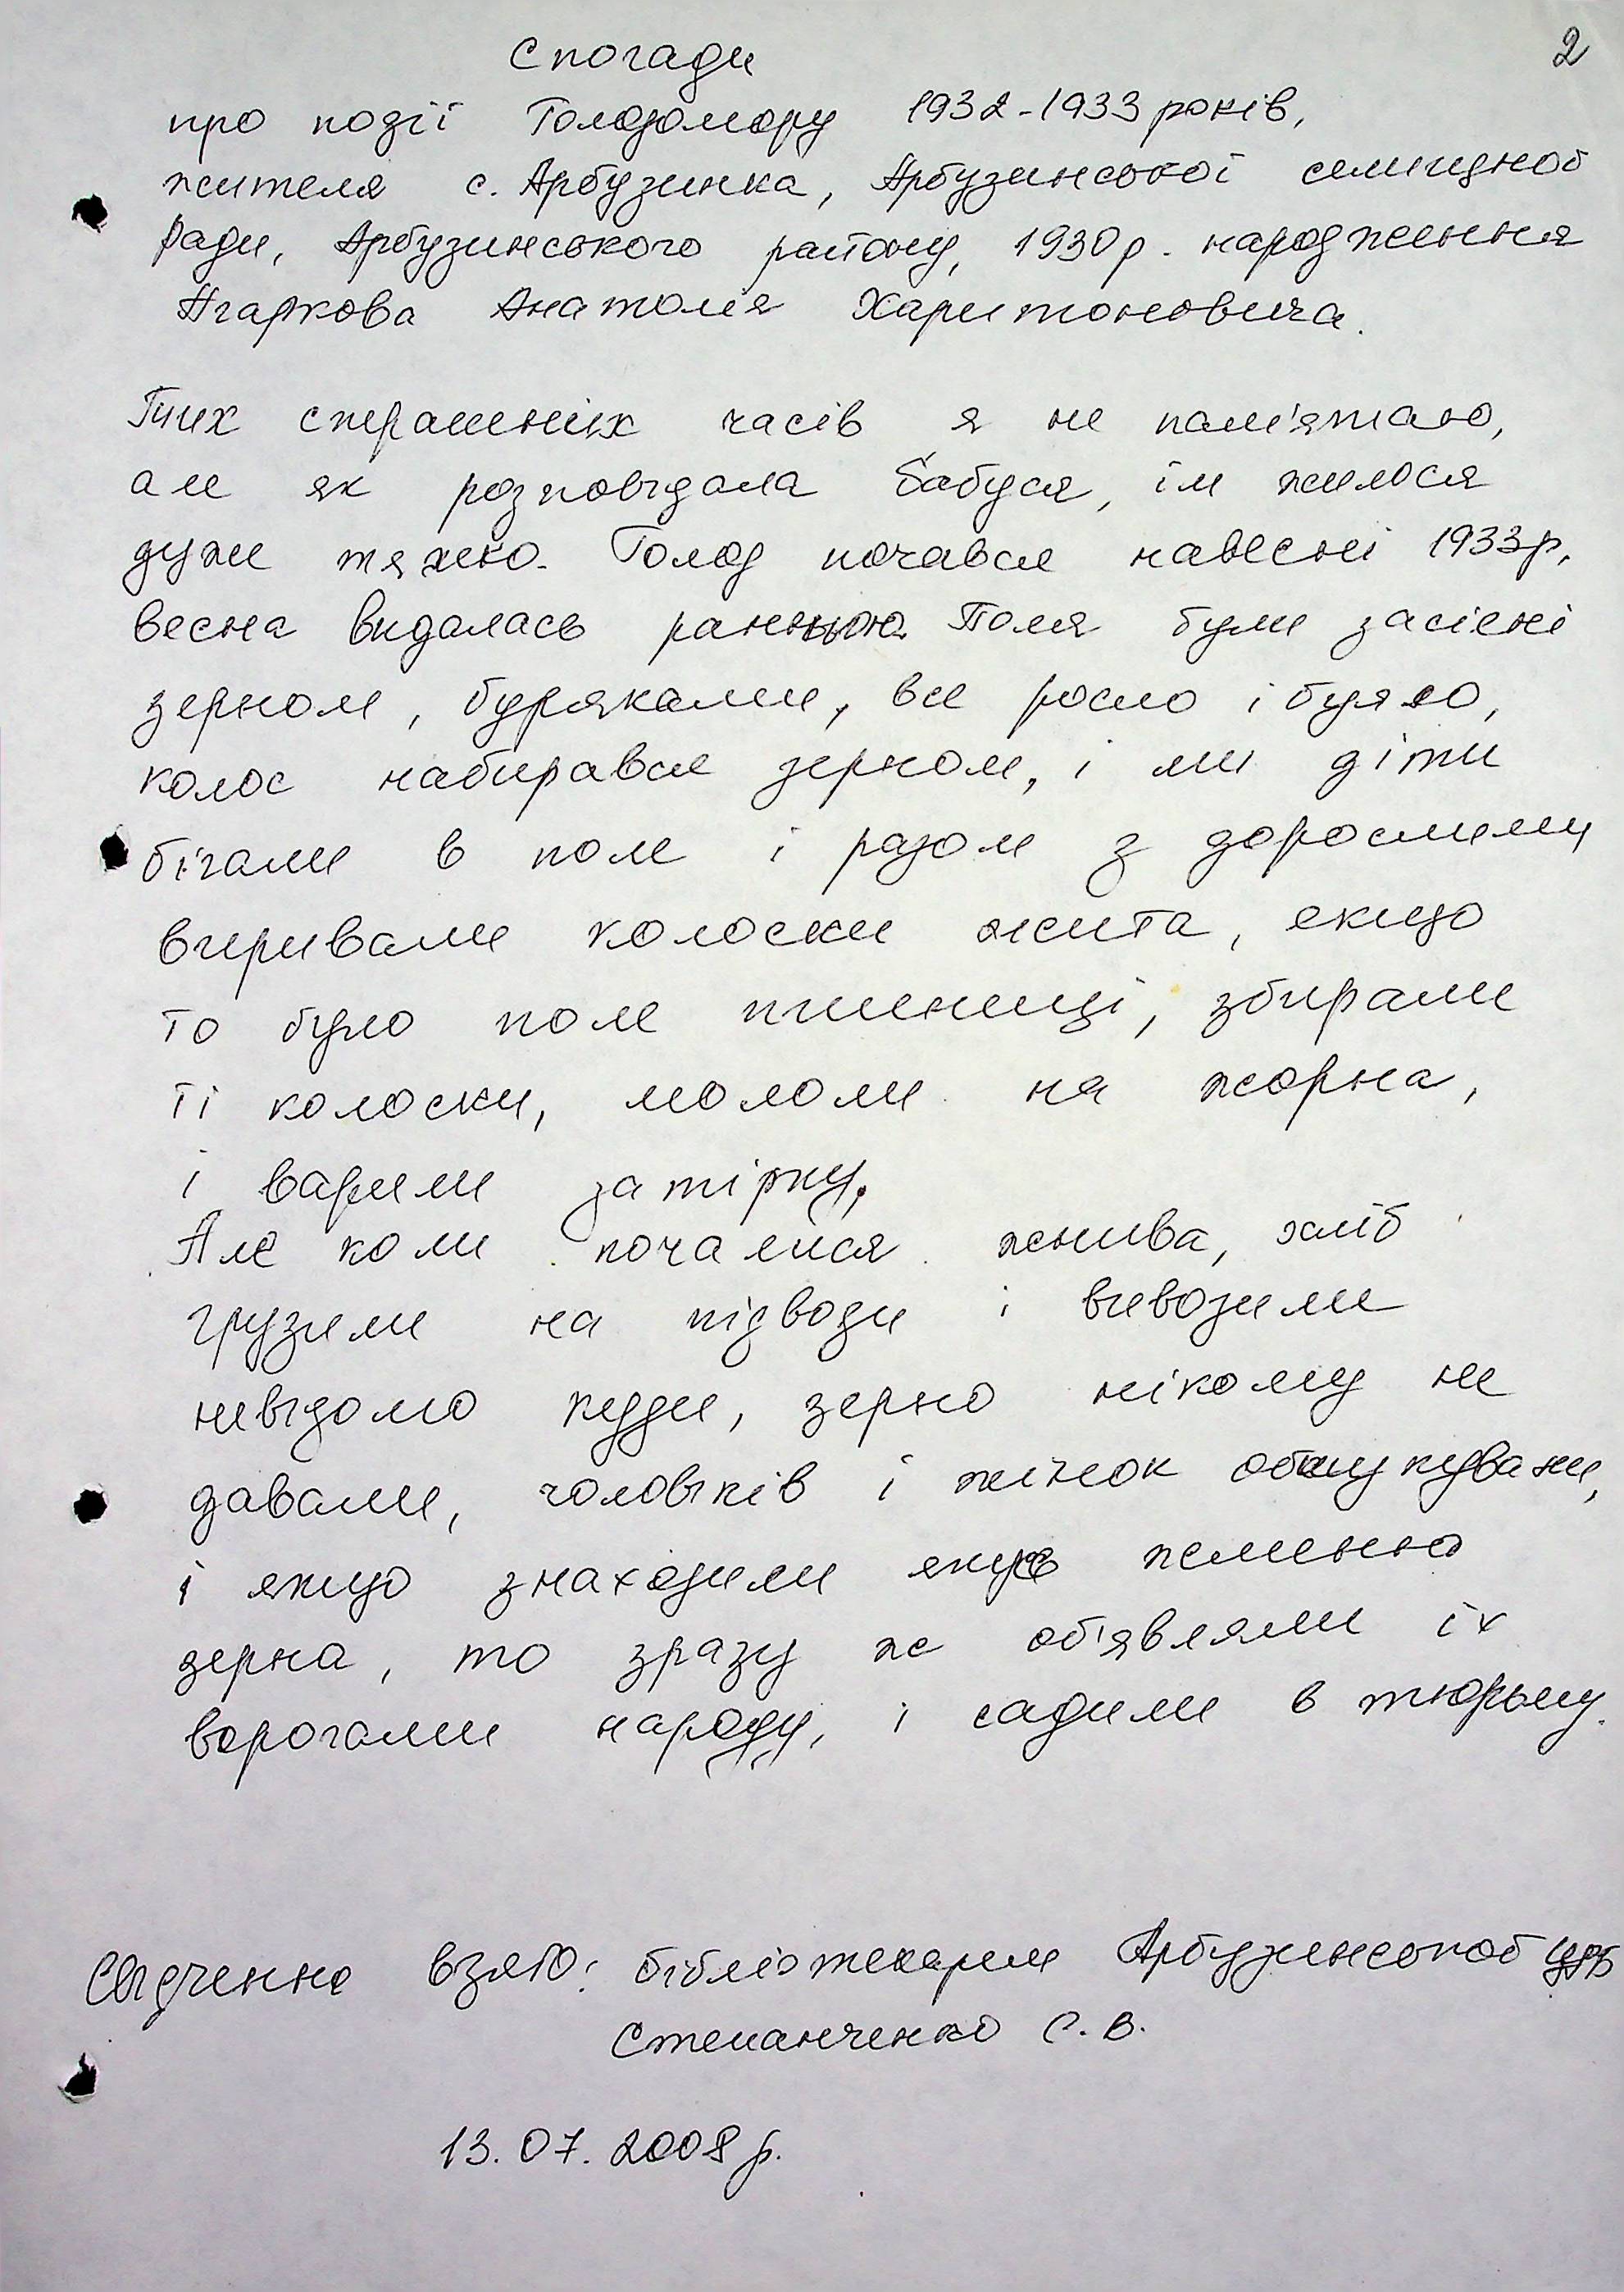 Спогади
2
про події Голодомору 1932-1933 років,
жителя с. Арбузинка, Арбузинської селищної
ради, Арбузинського району, 1930 р. народження
Анатолія Харитоновича.
Тих страшних часів я не пам'ятаю,
але як розповідала бабуся, їм жилося
дуже тяжко. Голод почався навесні 1933р,
весна видалась ранньою. Поля були засіяні
зерном, буряками, все росло і буяло,
колос набирався зерном, і ми діти
бігали в поле і разом з дорослими
виривали колоски жита, якщо
то було поле пшениці, збирали
ті колоски, мололи на жорна,
і варили затірку.
Але коли почалися жнива, хліб
грузили на підводи і вивозили
невідомо куди, зерно нікому не
давали, чоловіків і жінок обшукували,
і якщо знаходили якусь жменю
зерна, то зразу же об'являли їх
ворогами народу, і садили в тюрьму.
Свідчення взято: бібліотекарем Арбузинської ЦРБ
Степанченко С. В.
13.07.2008 р.